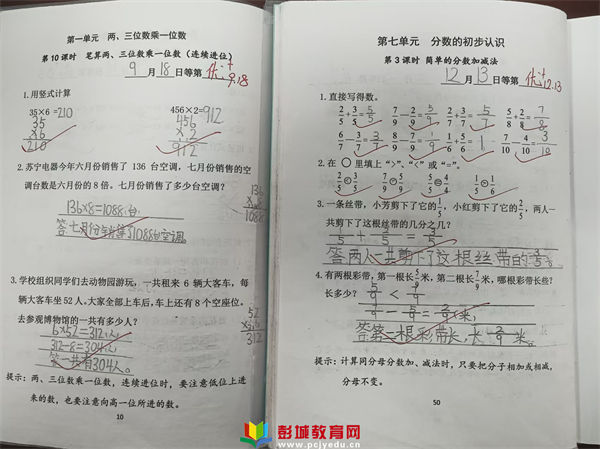 第一单元 两、三位数乘一位数
第10课时 笔算两、三位数乘一位数（连续进位）
9月18日等第 优+
9.18
1.用竖式计算
35×6=210 456×2=912
35 456
×6 ×2
210 912
2.苏宁电器今年六月份销售了 136 台空调，七月份销售的空
调台数是六月份的 8 倍。七月份销售了多少台空调？
136
×8
1088
136×8=1088台
答:七月份销售了1088台空调。
3.学校组织同学们去动物园游玩，一共租来 6 辆大客车，每
辆大客车坐52人，大家全部上车后，车上还有8个空座位。
去参观博物馆的一共有多少人？
52
×6
312
6×52=312人
312-8=304人
答:一共有304人。
提示：两、三位数乘一位数，连续进位时，要注意低位上进
来的数，也要注意向高一位所进的数。
10
第七单元 分数的初步认识
第3课时 简单的分数加减法
12月13日等第 优+
12.13
1.直接写得数。
2/5+3/5=5/5 7/9-2/9=5/9 2/7+3/7=5/7 5/8+2/8=7/8
6/7-3/7=3/7 8/9-7/9=1/9 1/6+5/6=1 7/10-4/10=3/10
2.在 ○ 里填上“>”、“<”或“=”。
3.一条丝带，小芳剪下了它的1/5，小红剪下了它的2/5，两人一
共剪下了这根丝带的几分之几？
1/5+2/5=3/5
答:两人一共剪下了这根丝带的3/5。
4.有两根彩带，第一根长5/9米，第二根长7/9米，哪根彩带长些？
长多少？
5/9<7/9
7/9-5/9=2/9(米)
提示：计算同分母分数加、减法时，只要把分子相加或相减，
分母不变。
50
彭城教育网
www.pcjyedu.cn